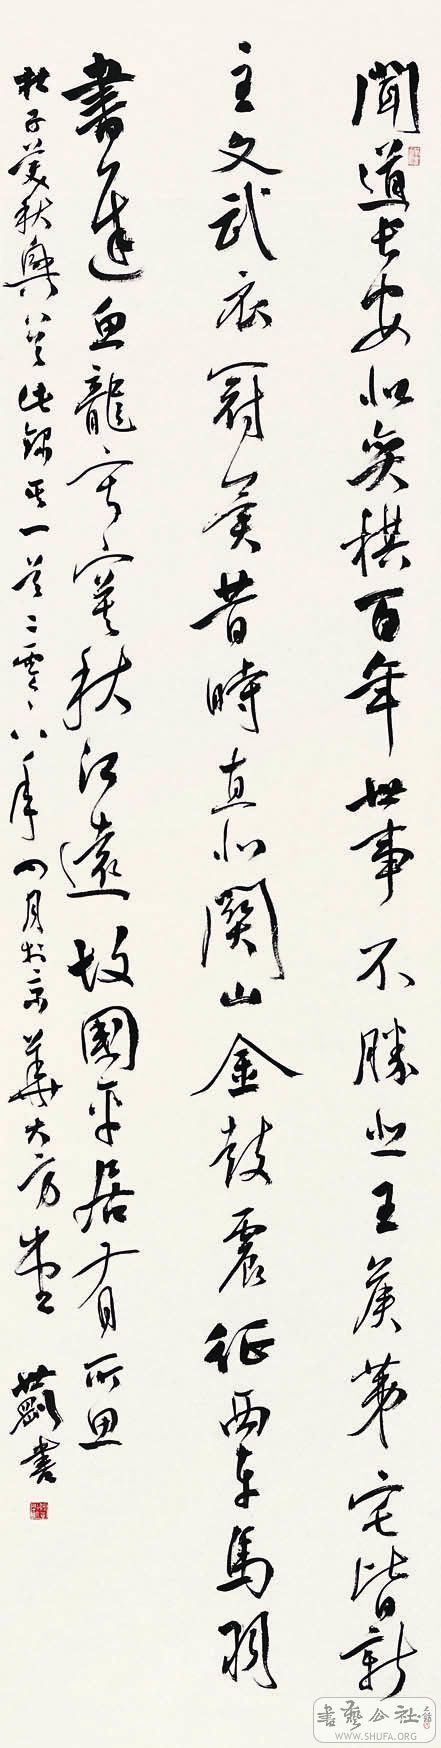 聞道長安似奕棋百年世事不勝悲王侯第宅皆新
主文武衣冠異昔時直北關山金鼓震征西車馬羽
書遲魚龍寂寞秋江遠故國平居有所思
杜子美秋興八首此錄其一首二零零八年四月於京華大方堂 世書
書藝公社
WWW.SHUFA.ORG